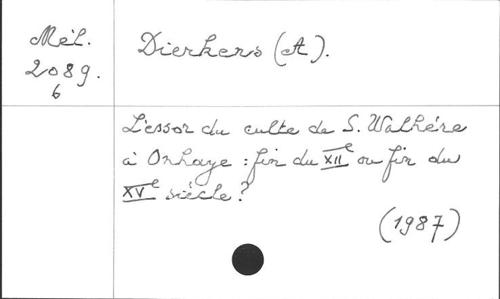 Mél.
2089.
6
Dierkens (A).
L'essor du culte de S. Walhère
à Onhaye : fin du XIIe ou fin du
XVe siècle ?
(1987)